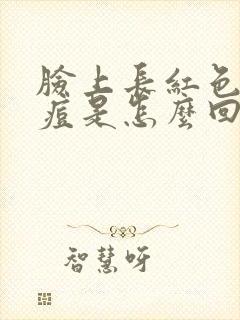 臉上長紅色
痘是怎麼回
智慧呀